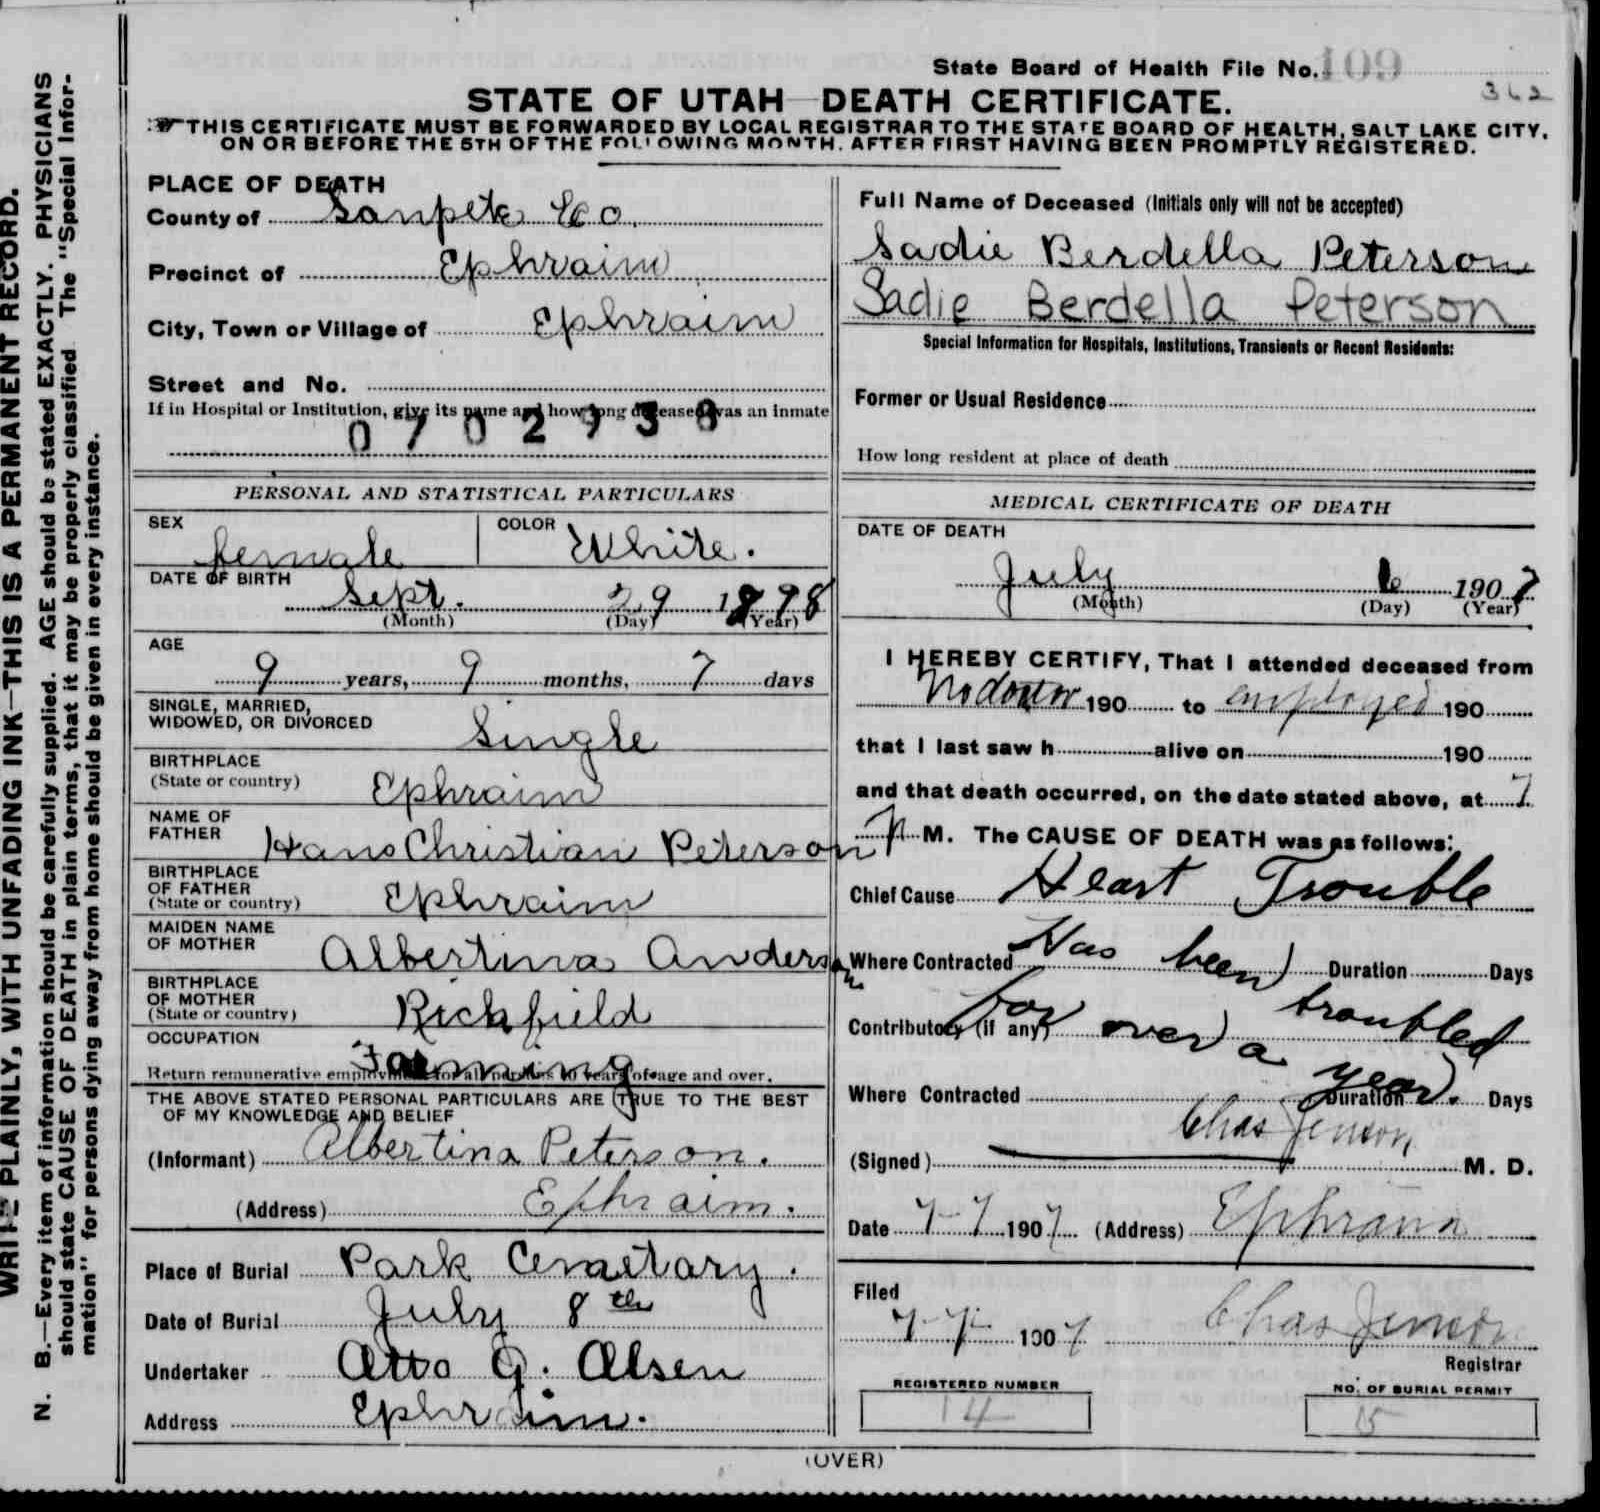 WRITE PLAINLY, WITH UNFADING INK—THIS IS A PERMANENT RECORD.
N. B.—Every item of information should be carefully supplied. AGE should be stated EXACTLY. PHYSICIANS
should state CAUSE OF DEATH in plain terms, that it may be properly classified The "Special Infor-
mation" for persons dying away from home should be given in every instance.
State Board of Health File No. 109
362
STATE OF UTAH—DEATH CERTIFICATE.
THIS CERTIFICATE MUST BE FORWARDED BY LOCAL REGISTRAR TO THE STATE BOARD OF HEALTH, SALT LAKE CITY,
ON OR BEFORE THE 5TH OF THE FOLLOWING MONTH, AFTER FIRST HAVING BEEN PROMPTLY REGISTERED.
PLACE OF DEATH
County of Sanpete Co.
Precinct of Ephraim
City, Town or Village of Ephraim
Street and No.
If in Hospital or Institution, give its name and how long deceased was an inmate
0702938
PERSONAL AND STATISTICAL PARTICULARS
SEX female COLOR White.
DATE OF BIRTH
Sept. 29 1898
(Month) (Day) (Year)
AGE
9 years, 9 months, 7 days
SINGLE, MARRIED,
WIDOWED, OR DIVORCED Single
BIRTHPLACE
(State or country) Ephraim
NAME OF
FATHER Hans Christian Peterson
BIRTHPLACE
OF FATHER
(State or country) Ephraim
MAIDEN NAME
OF MOTHER Albertina Anderson
BIRTHPLACE
OF MOTHER
(State or country) Richfield
OCCUPATION
Farming.
Return remunerative employment for all persons 10 years of age and over.
THE ABOVE STATED PERSONAL PARTICULARS ARE TRUE TO THE BEST
OF MY KNOWLEDGE AND BELIEF
(Informant) Albertina Peterson.
(Address) Ephraim.
Place of Burial Park Cemetary.
Date of Burial July 8th
Undertaker Otto G. Olsen
Address Ephraim.
Full Name of Deceased (Initials only will not be accepted)
Sadie Berdella Peterson
Sadie Berdella Peterson
Special Information for Hospitals, Institutions, Transients or Recent Residents:
Former or Usual Residence
How long resident at place of death
MEDICAL CERTIFICATE OF DEATH
DATE OF DEATH
July 6 1907
(Month) (Day) (Year)
I HEREBY CERTIFY, That I attended deceased from
No doctor 190 to employed 190
that I last saw h alive on 190
and that death occurred, on the date stated above, at 7
P M. The CAUSE OF DEATH was as follows:
Chief Cause Heart Trouble
Where Contracted Has been Duration Days
Contributory (if any) for over a troubled
Where Contracted year. Duration Days
Chas Jenson
(Signed) M. D.
Date 7-7 1907 (Address) Ephraim
Filed
7-7 1907 Chas Jenson
Registrar
REGISTERED NUMBER
14
NO. OF BURIAL PERMIT
15
(OVER)